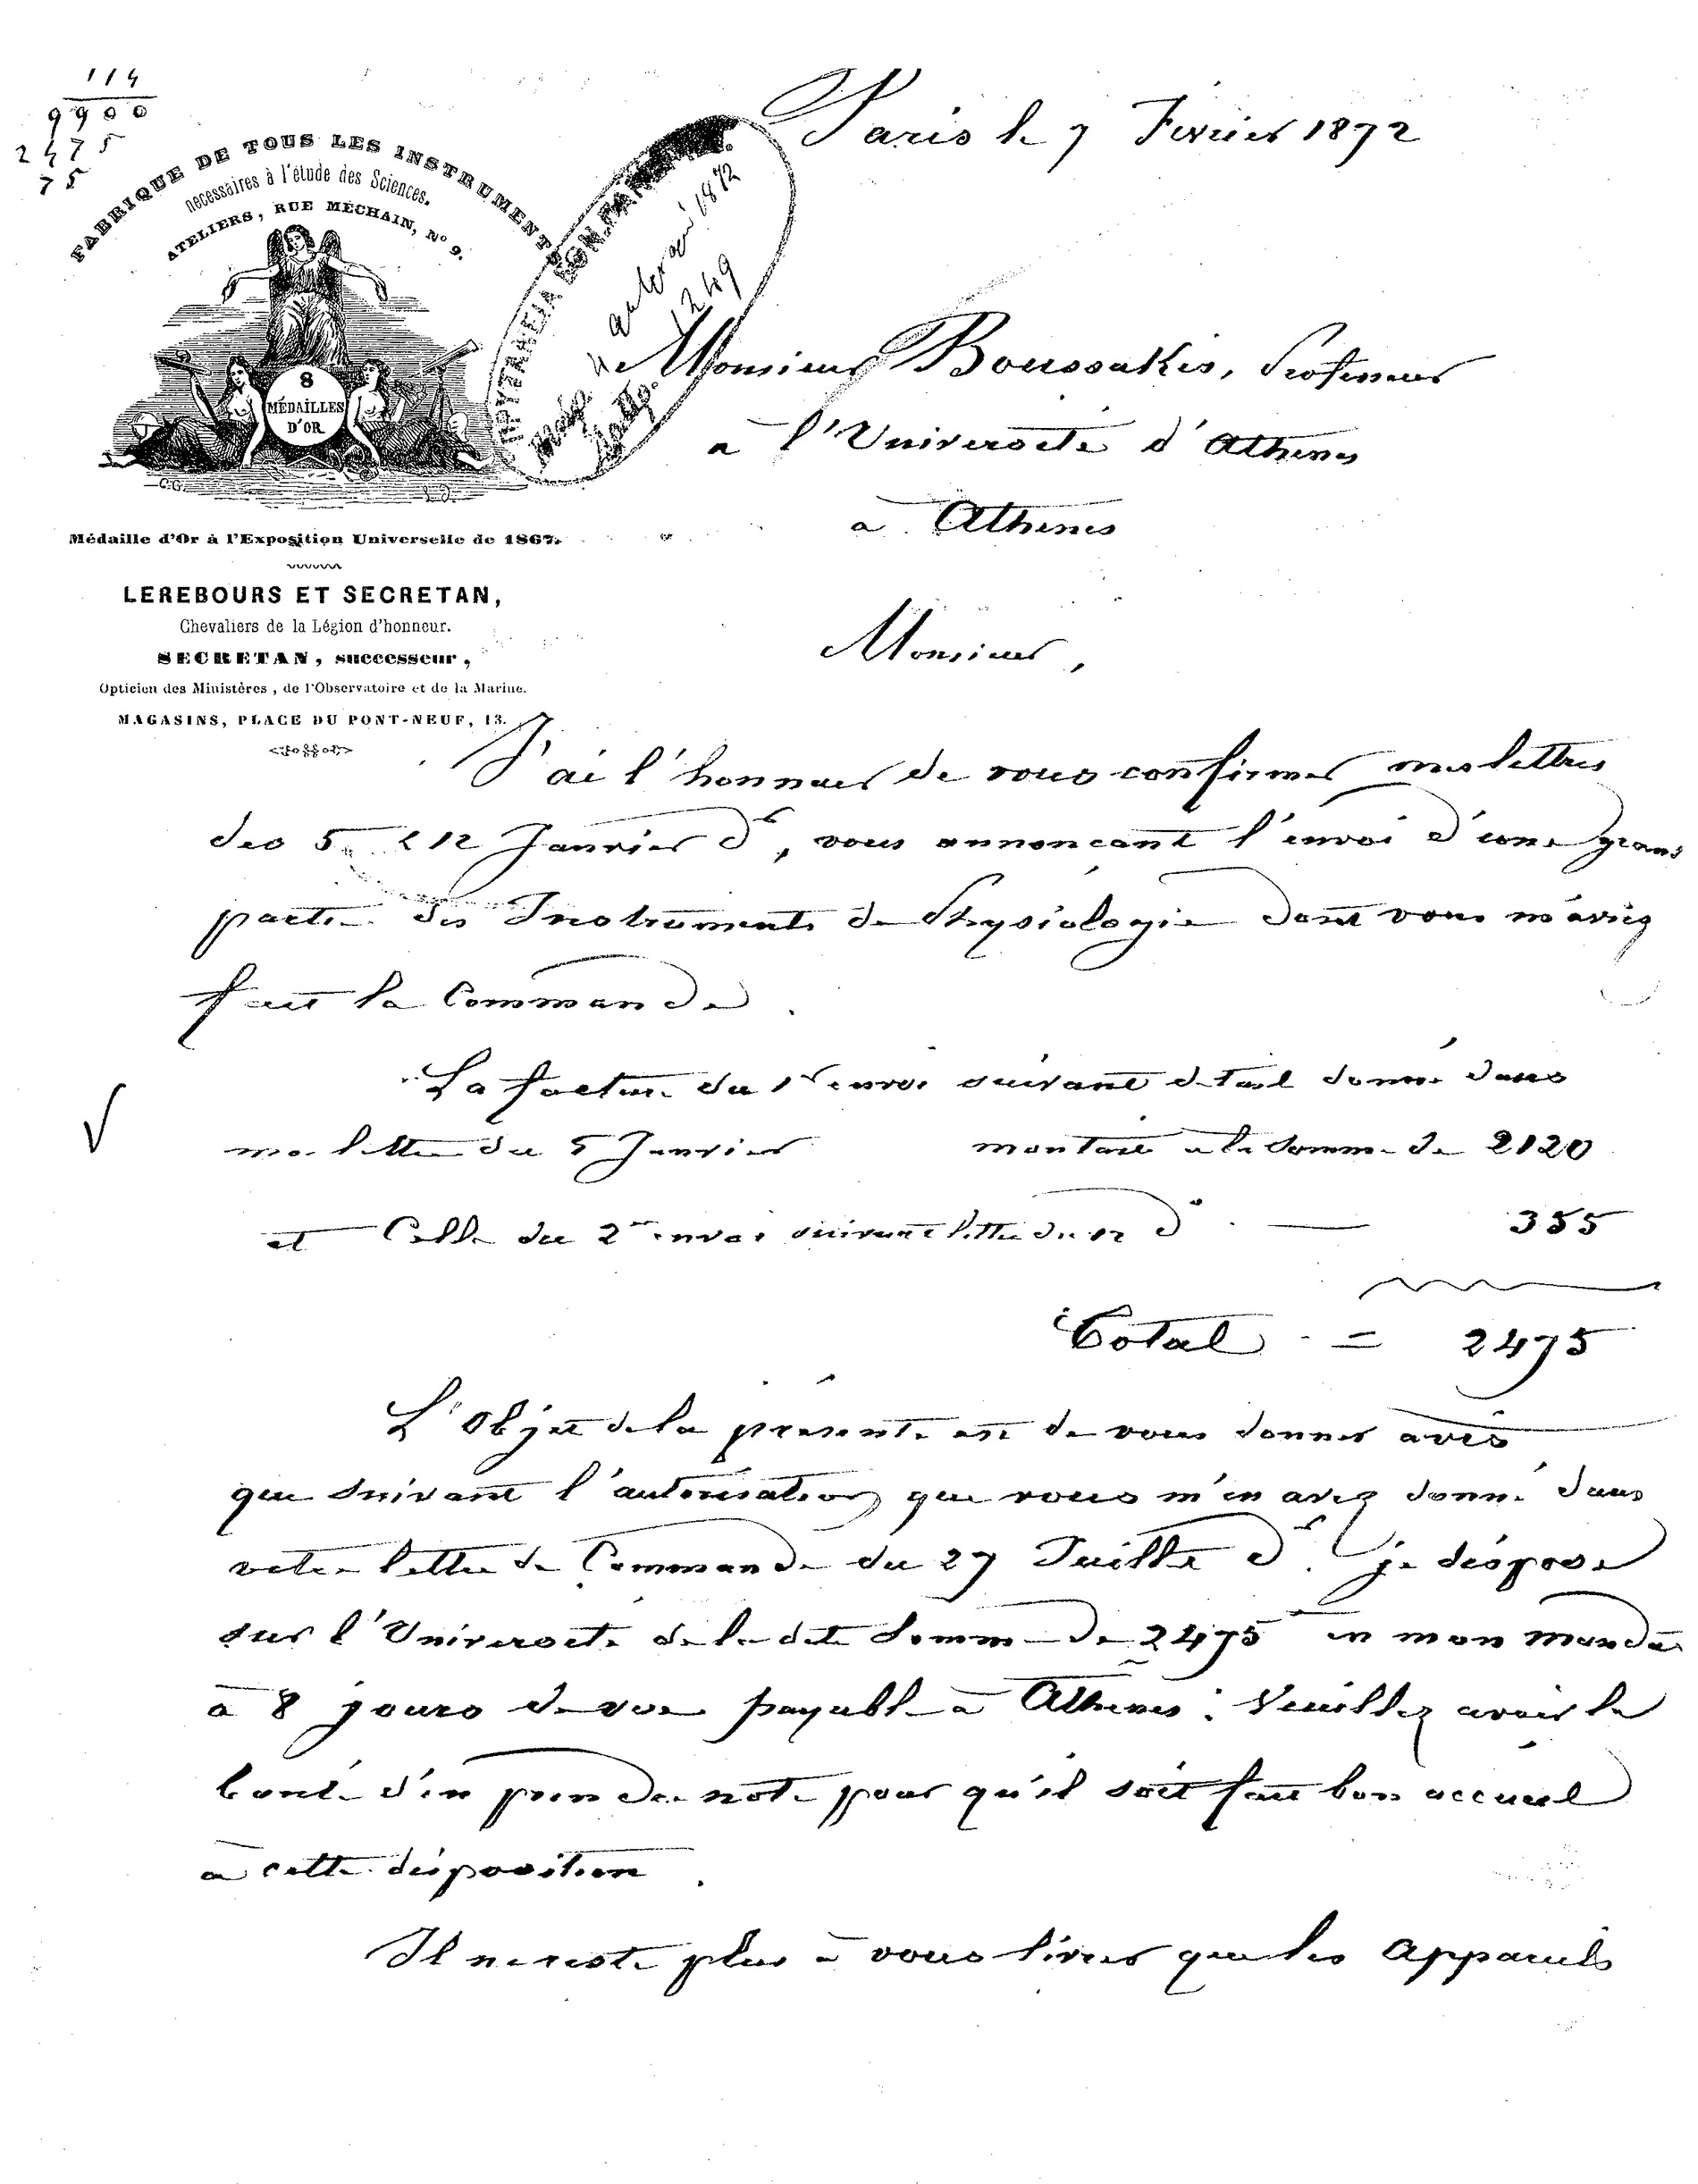 114
9900
2475
75
FABRIQUE DE TOUS LES INSTRUMENTS
nécessaires à l'étude des Sciences.
ATELIERS, RUE MÉCHAIN, Nº 9.
8
MÉDAILLES
D'OR
C.G.
Médaille d'Or à l'Exposition Universelle de 1867.
LEREBOURS ET SECRETAN,
Chevaliers de la Légion d'honneur.
SECRETAN, successeur,
Opticien des Ministères, de l'Observatoire et de la Marine.
MAGASINS, PLACE DU PONT-NEUF, 13.
1872
1249
Paris le 7 Février 1872
Monsieur Boussakis, Professeur
à l'Université d'Athenes
à Athenes
Monsieur,
J'ai l'honneur de vous confirmer mes lettres
des 5 & 12 Janvier dr, vous annonçant l'envoi d'une grand
partie des Instruments de Physiologie dont vous m'aviez
fait la Commande.
La facture du 1r envoi suivant detail donné dans
ma lettre du 5 Janvier montait a la somme de 2120
et Celle du 2me envoi suivant lettre du 12 do — 355
Total = 2475
L'Objet de la présente est de vous donner avis
que suivant l'autorisation que vous m'en avez donné dans
votre lettre de Commande du 27 Juillet dr. je dispose
sur l'Université de la dite Somme de 2475 en mon mandat
à 8 jours de vue payable à Athenes; Veuillez avoir la
bonté d'en prendre note pour qu'il soit fait bon accueil
à cette disposition.
Il ne reste plus à vous livrer que les appareils